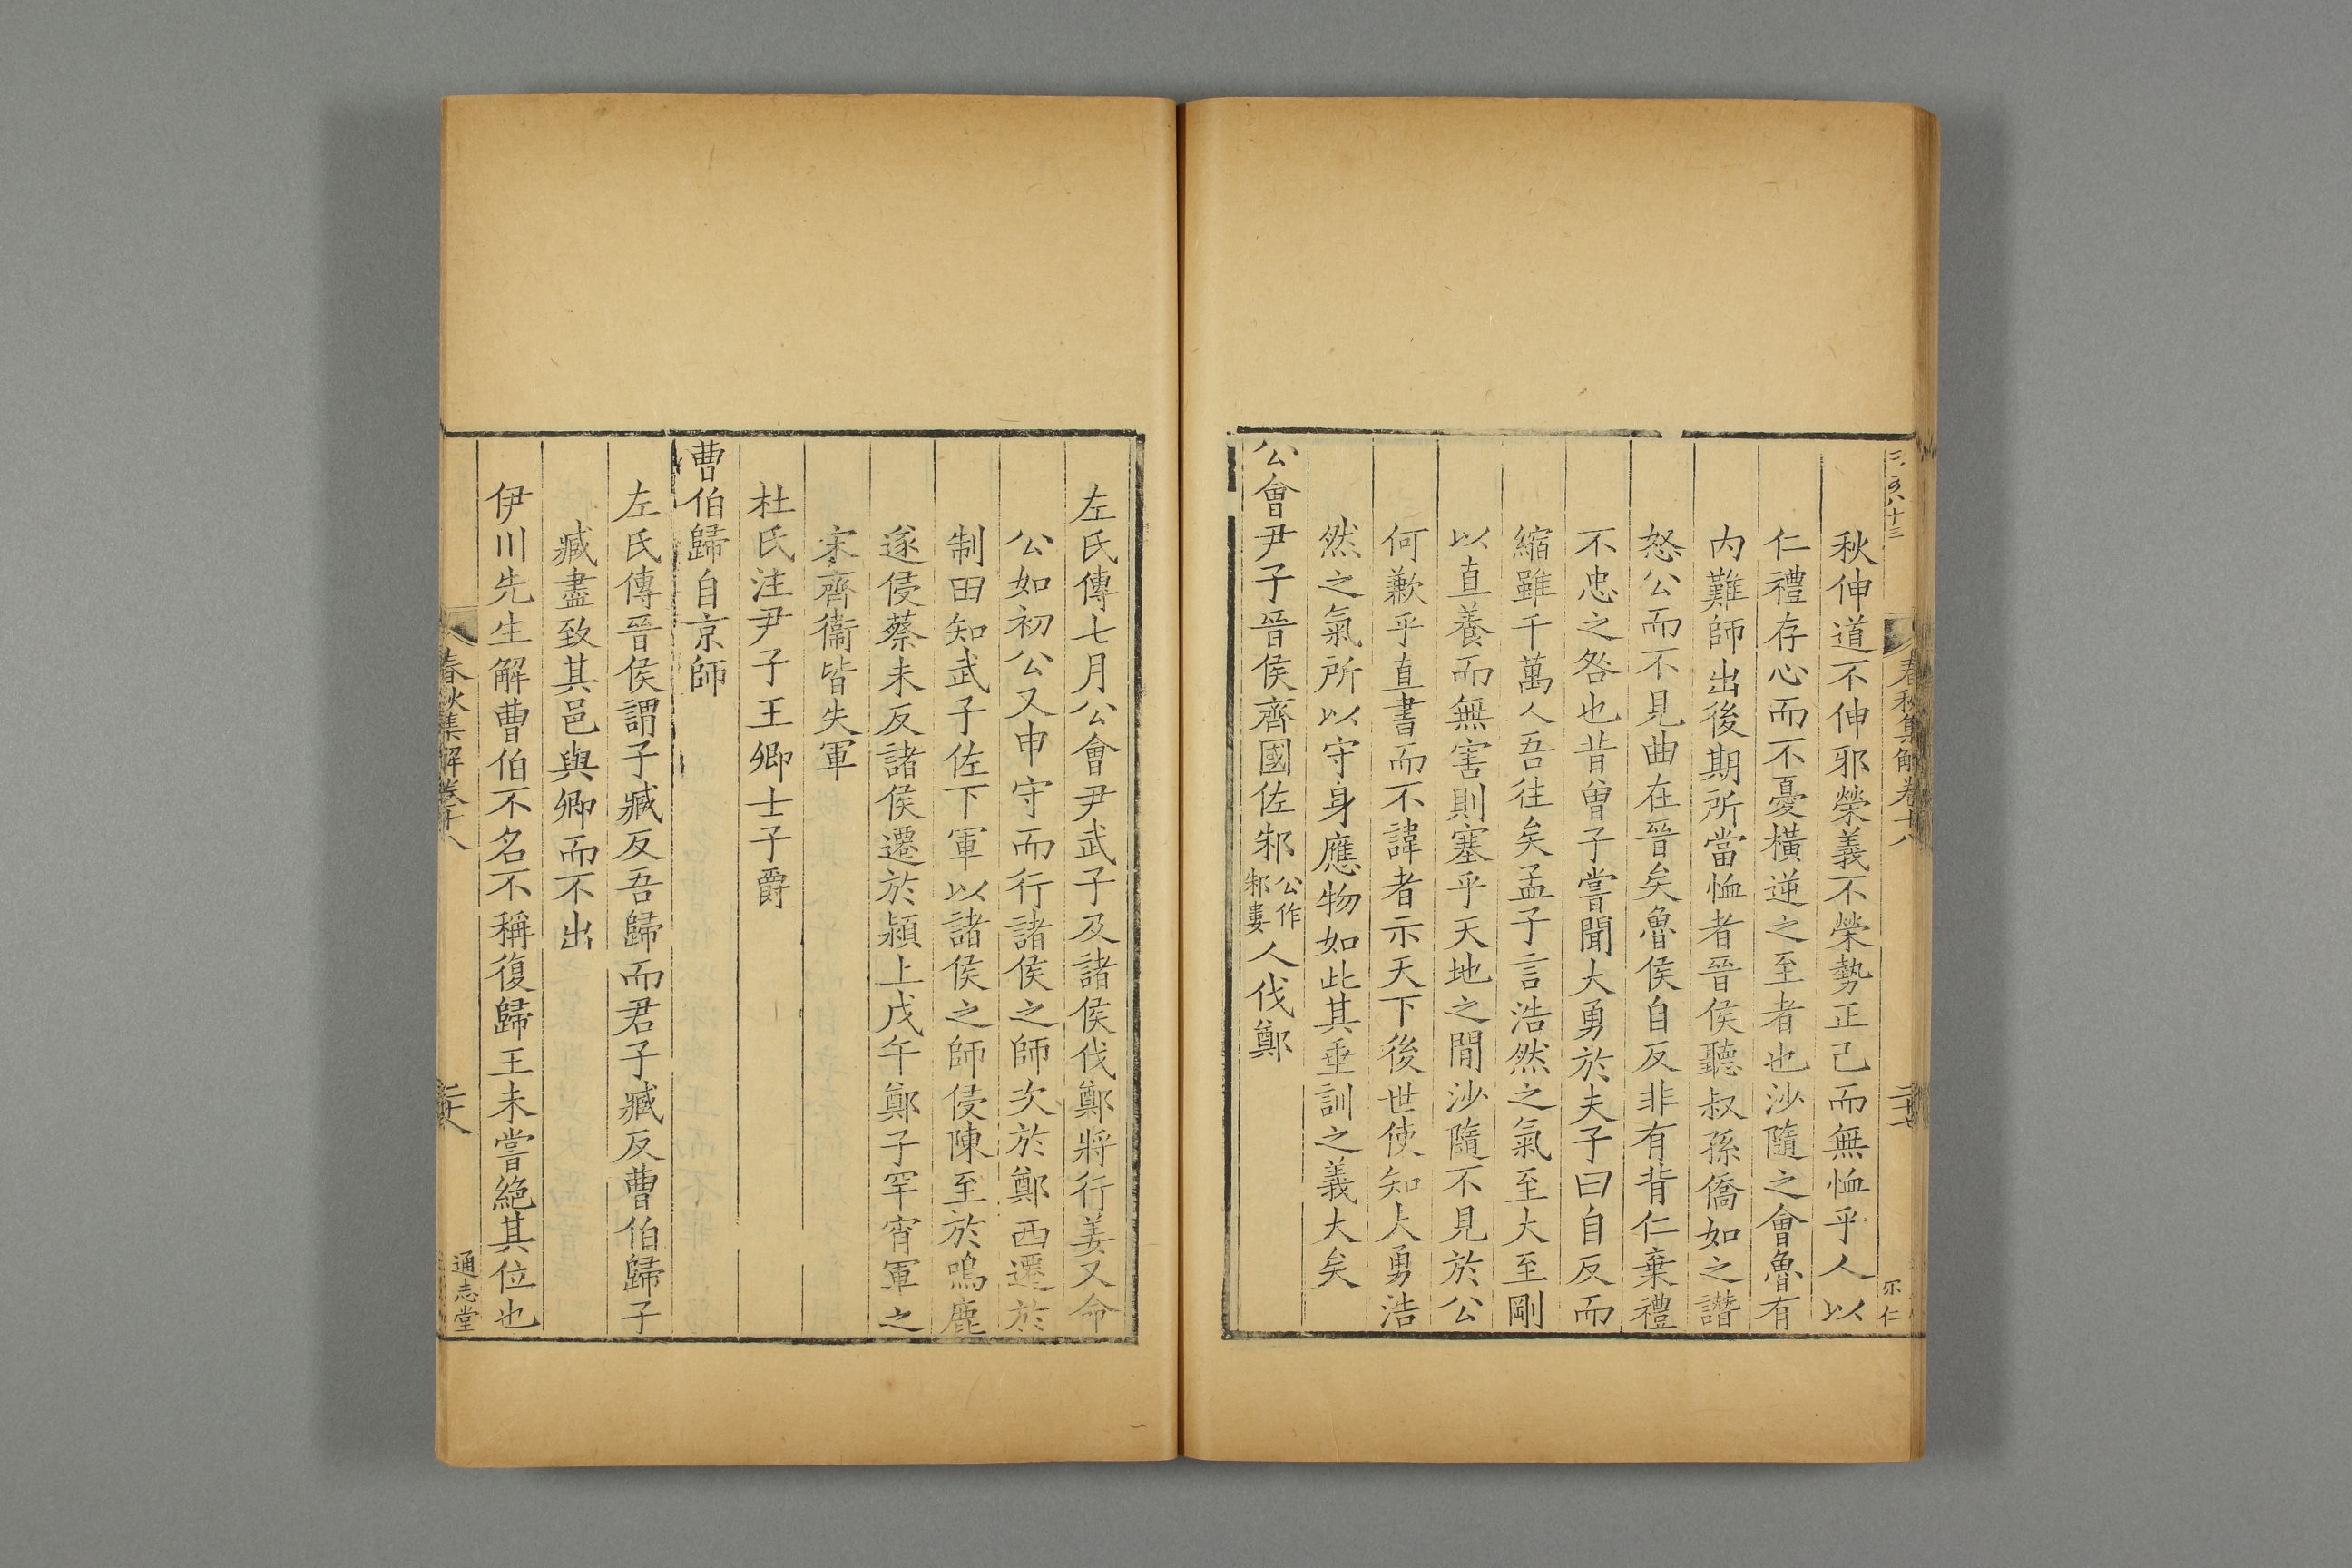 春秋集解卷十八
二十七
秋伸道不伸邪榮義不榮勢正己而無恤乎人以
仁禮存心而不憂橫逆之至者也沙隨之會魯有
内難師出後期所當恤者晉侯聽叔孫僑如之譖
怒公而不見曲在晉矣魯侯自反非有背仁棄禮
不忠之咎也昔曾子嘗聞大勇於夫子曰自反而
縮雖千萬人吾往矣孟子言浩然之氣至大至剛
以直養而無害則塞乎天地之閒沙隨不見於公
何歉乎直書而不諱者示天下後世使知大勇浩
然之氣所以守身應物如此其垂訓之義大矣
公會尹子晉侯齊國佐邾公作邾婁人伐鄭
左氏傳七月公會尹武子及諸侯伐鄭將行姜又命
公如初公又申守而行諸侯之師次於鄭西遷於
制田知武子佐下軍以諸侯之師侵陳至於鳴鹿
遂侵蔡未反諸侯遷於潁上戊午鄭子罕宵軍之
宋齊衞皆失軍
杜氏注尹子王卿士子爵
曹伯歸自京師
左氏傳晉侯謂子臧反吾歸而君子臧反曹伯歸子
臧盡致其邑與卿而不出
伊川先生解曹伯不名不稱復歸王未嘗絕其位也
春秋集解卷十八
二十八
通志堂